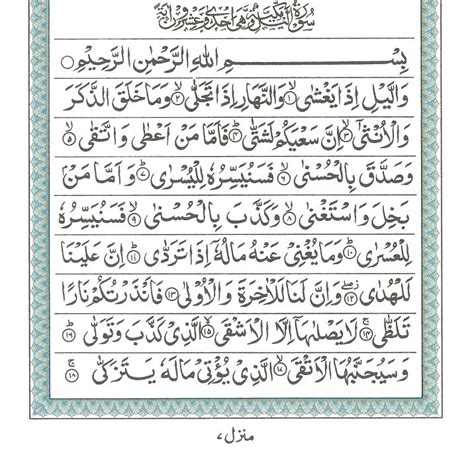 سُوْرَةُ الَّيْلِ مَكِّيَّةٌ وَّهِيَ اِحْدٰى وَعِشْرُوْنَ اٰيَةً
بِسْمِ اللهِ الرَّحْمٰنِ الرَّحِيْمِ ○
وَالَّيْلِ اِذَا يَغْشٰى ۱ وَالنَّهَارِ اِذَا تَجَلّٰى ۲ وَمَا خَلَقَ الذَّكَرَ
وَالْاُنْثٰٓى ۳ اِنَّ سَعْيَكُمْ لَشَتّٰى ۴ فَاَمَّا مَنْ اَعْطٰى وَاتَّقٰى ۵
وَصَدَّقَ بِالْحُسْنٰى ۶ فَسَنُيَسِّرُهٗ لِلْيُسْرٰى ۷ وَاَمَّا مَنْۢ
بَخِلَ وَاسْتَغْنٰى ۸ وَكَذَّبَ بِالْحُسْنٰى ۹ فَسَنُيَسِّرُهٗ
لِلْعُسْرٰى ۱۰ وَمَا يُغْنِيْ عَنْهُ مَالُهٗٓ اِذَا تَرَدّٰى ۱۱ اِنَّ عَلَيْنَا
لَلْهُدٰى ۱۲ وَاِنَّ لَنَا لَلْاٰخِرَةَ وَالْاُوْلٰى ۱۳ فَاَنْذَرْتُكُمْ نَارًا
تَلَظّٰى ۱۴ لَا يَصْلٰىهَآ اِلَّا الْاَشْقَى ۱۵ الَّذِيْ كَذَّبَ وَتَوَلّٰى ۱۶
وَسَيُجَنَّبُهَا الْاَتْقَى ۱۷ الَّذِيْ يُؤْتِيْ مَالَهٗ يَتَزَكّٰى ۱۸
منزل ۷